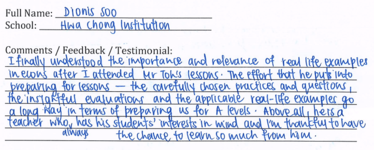 Full Name: Dionis Soo
School: Hwa Chong Institution
Comments / Feedback / Testimonial:
I finally understood the importance and relevance of real life examples
in econs after I attended Mr Toh's lessons. The effort that he puts into
preparing for lessons — the carefully chosen practices and questions,
the insightful evaluations and the applicable real-life examples go
a long way in terms of preparing us for A levels. Above all, he is a
teacher who always has his students' interests in mind and I'm thankful to have
the chance to learn so much from him.